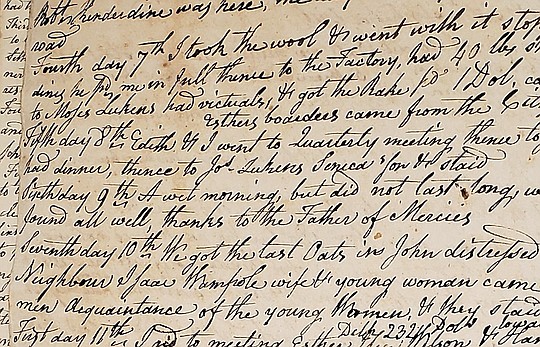 Robt Shenderdine was here, the
road
Fourth day 7th I took the wool & went with it
dines he pd me in full thence to the Factory, had 40 lbs
to Moses Lukens had victuals, & got the Rake pd 1 Dol,
Esthers boardees came from the City
Fifth day 8th Edith & I went to Quarterly meeting thence to
had dinner, thence to Jos Lukens Seneca Jon & staid
Sixth day 9th A wet morning, but did not last long, we
found all well, thanks to the Father of Mercies
Seventh day 10th We got the last Oats in John distressed
Neighbour Isaac Wampole wife & young woman came
men Acquaintance of the young Women, & they staid
First day 11th I rid to meeting Esther